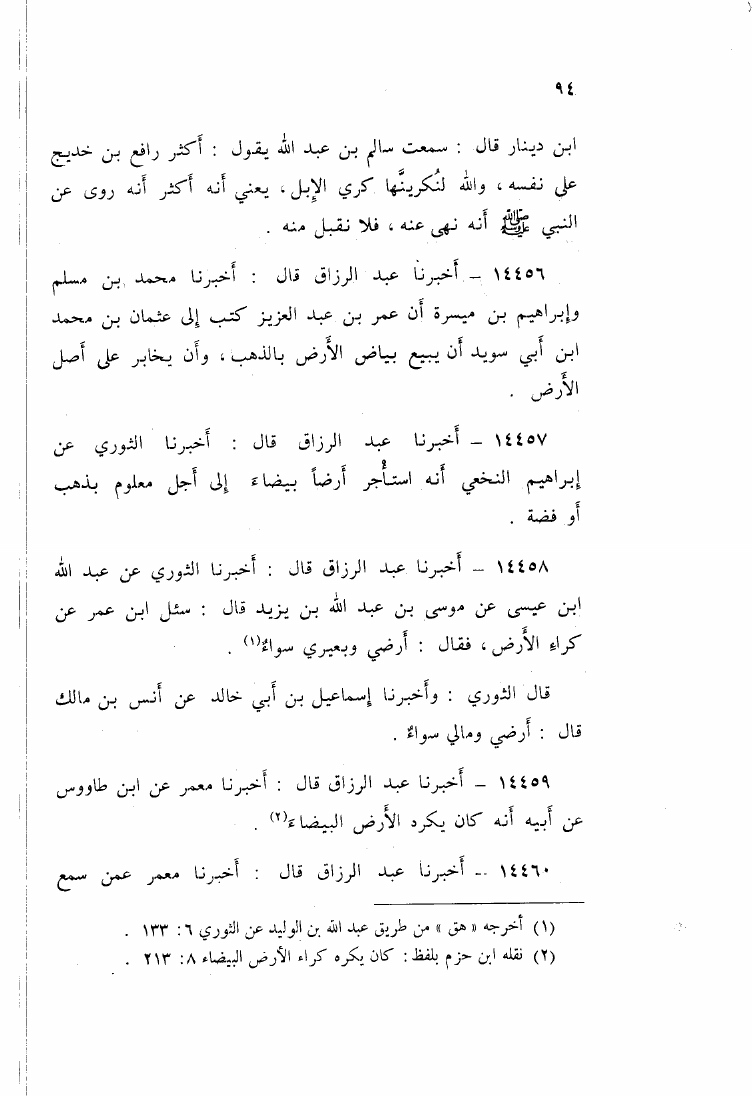 ٩٤
ابن دينار قال : سمعت سالم بن عبد الله يقول : أكثر رافع بن خديج
على نفسه ، والله لنُكرينَّها كري الإبل ، يعني أنه أكثر أنه روى عن
النبي ﷺ أنه نهى عنه ، فلا نقبل منه .
١٤٤٥٦ – أخبرنا عبد الرزاق قال : أخبرنا محمد بن مسلم
وإبراهيم بن ميسرة أن عمر بن عبد العزيز كتب إلى عثمان بن محمد
ابن أبي سويد أن يبيع بياض الأرض بالذهب ، وأن يخابر على أصل
الأرض .
١٤٤٥٧ – أخبرنا عبد الرزاق قال : أخبرنا الثوري عن
إبراهيم النخعي أنه استأُجر أرضاً بيضاءَ إلى أجل معلوم بذهب
أو فضة .
١٤٤٥٨ – أخبرنا عبد الرزاق قال : أخبرنا الثوري عن عبد الله
ابن عيسى عن موسى بن عبد الله بن يزيد قال : سئل ابن عمر عن
كراءِ الأرض ، فقال : أرضي وبعيري سواءٌ(١) .
قال الثوري : وأخبرنا إسماعيل بن أبي خالد عن أنس بن مالك
قال : أرضي ومالي سواءٌ .
١٤٤٥٩ – أخبرنا عبد الرزاق قال : أخبرنا معمر عن ابن طاووس
عن أبيه أنه كان يكره الأرض البيضاءَ(٢) .
١٤٤٦٠ – أخبرنا عبد الرزاق قال : أخبرنا معمر عمن سمع
(١) أخرجه « هق » من طريق عبد الله بن الوليد عن الثوري ٦: ١٣٣ .
(٢) نقله ابن حزم بلفظ : كان يكره كراء الأرض البيضاء ٨: ٢١٣ .